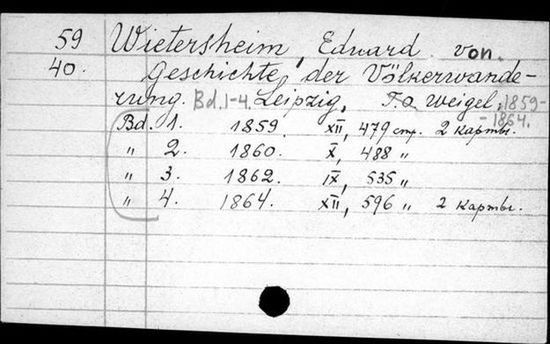 59 Wietersheim, Eduard von.
40. Geschichte der Völkerwande-
rung. Bd. 1-4. Leipzig, T.O. Weigel, 1859-
-1864.
Bd. 1. 1859. XII, 479 стр. 2 карты.
„ 2. 1860. X, 488 „
„ 3. 1862. IX, 535 „
„ 4. 1864. XII, 596 „ 2 карты.